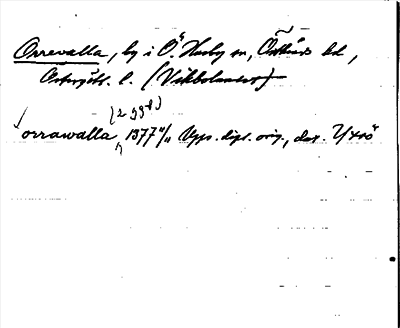 Orrevalla, by i Ö. Husby sn, Östkinds hd,
Östergötl. l. (Vikbolandet)
(2 ggr)
orrawalla 1377 Upps. dipl. orig., dat.